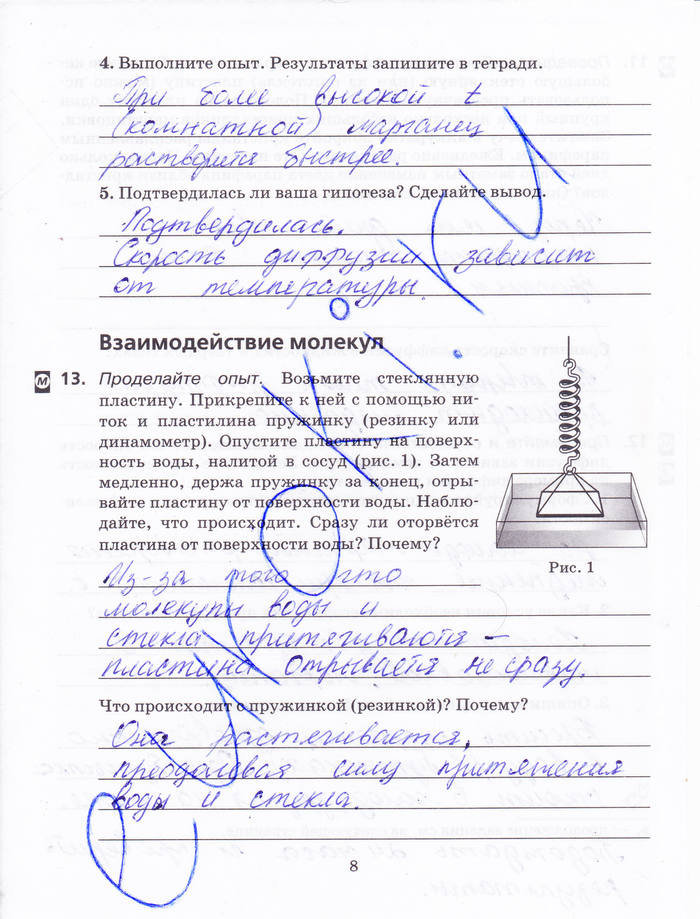 4. Выполните опыт. Результаты запишите в тетради.
При более высокой t
(комнатной) марганец
растворется быстрее.
5. Подтвердилась ли ваша гипотеза? Сделайте вывод.
Подтвердилась.
Скорость диффузии зависит
от температуры.
Взаимодействие молекул
М 13. Проделайте опыт. Возьмите стеклянную
пластину. Прикрепите к ней с помощью ни-
ток и пластилина пружинку (резинку или
динамометр). Опустите пластину на поверх-
ность воды, налитой в сосуд (рис. 1). Затем
медленно, держа пружинку за конец, отры-
вайте пластину от поверхности воды. Наблю-
дайте, что происходит. Сразу ли оторвётся
пластина от поверхности воды? Почему?
Рис. 1
Из-за того что
молекулы воды и
стекла притягиваются –
пластина отрывается не сразу.
Что происходит с пружинкой (резинкой)? Почему?
Она растягивается,
преодолевая силу притяжения
воды и стекла.
8